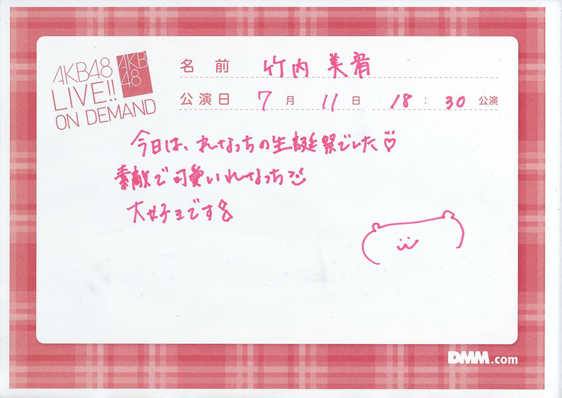 AKB48
LIVE!!
ON DEMAND
AKB
48
名前 竹内 美宥
公演日 7月 11日 18:30 公演
今日は、れなっちの生誕祭でした♡
素敵で可愛いれなっち
大好きです
DMM.com